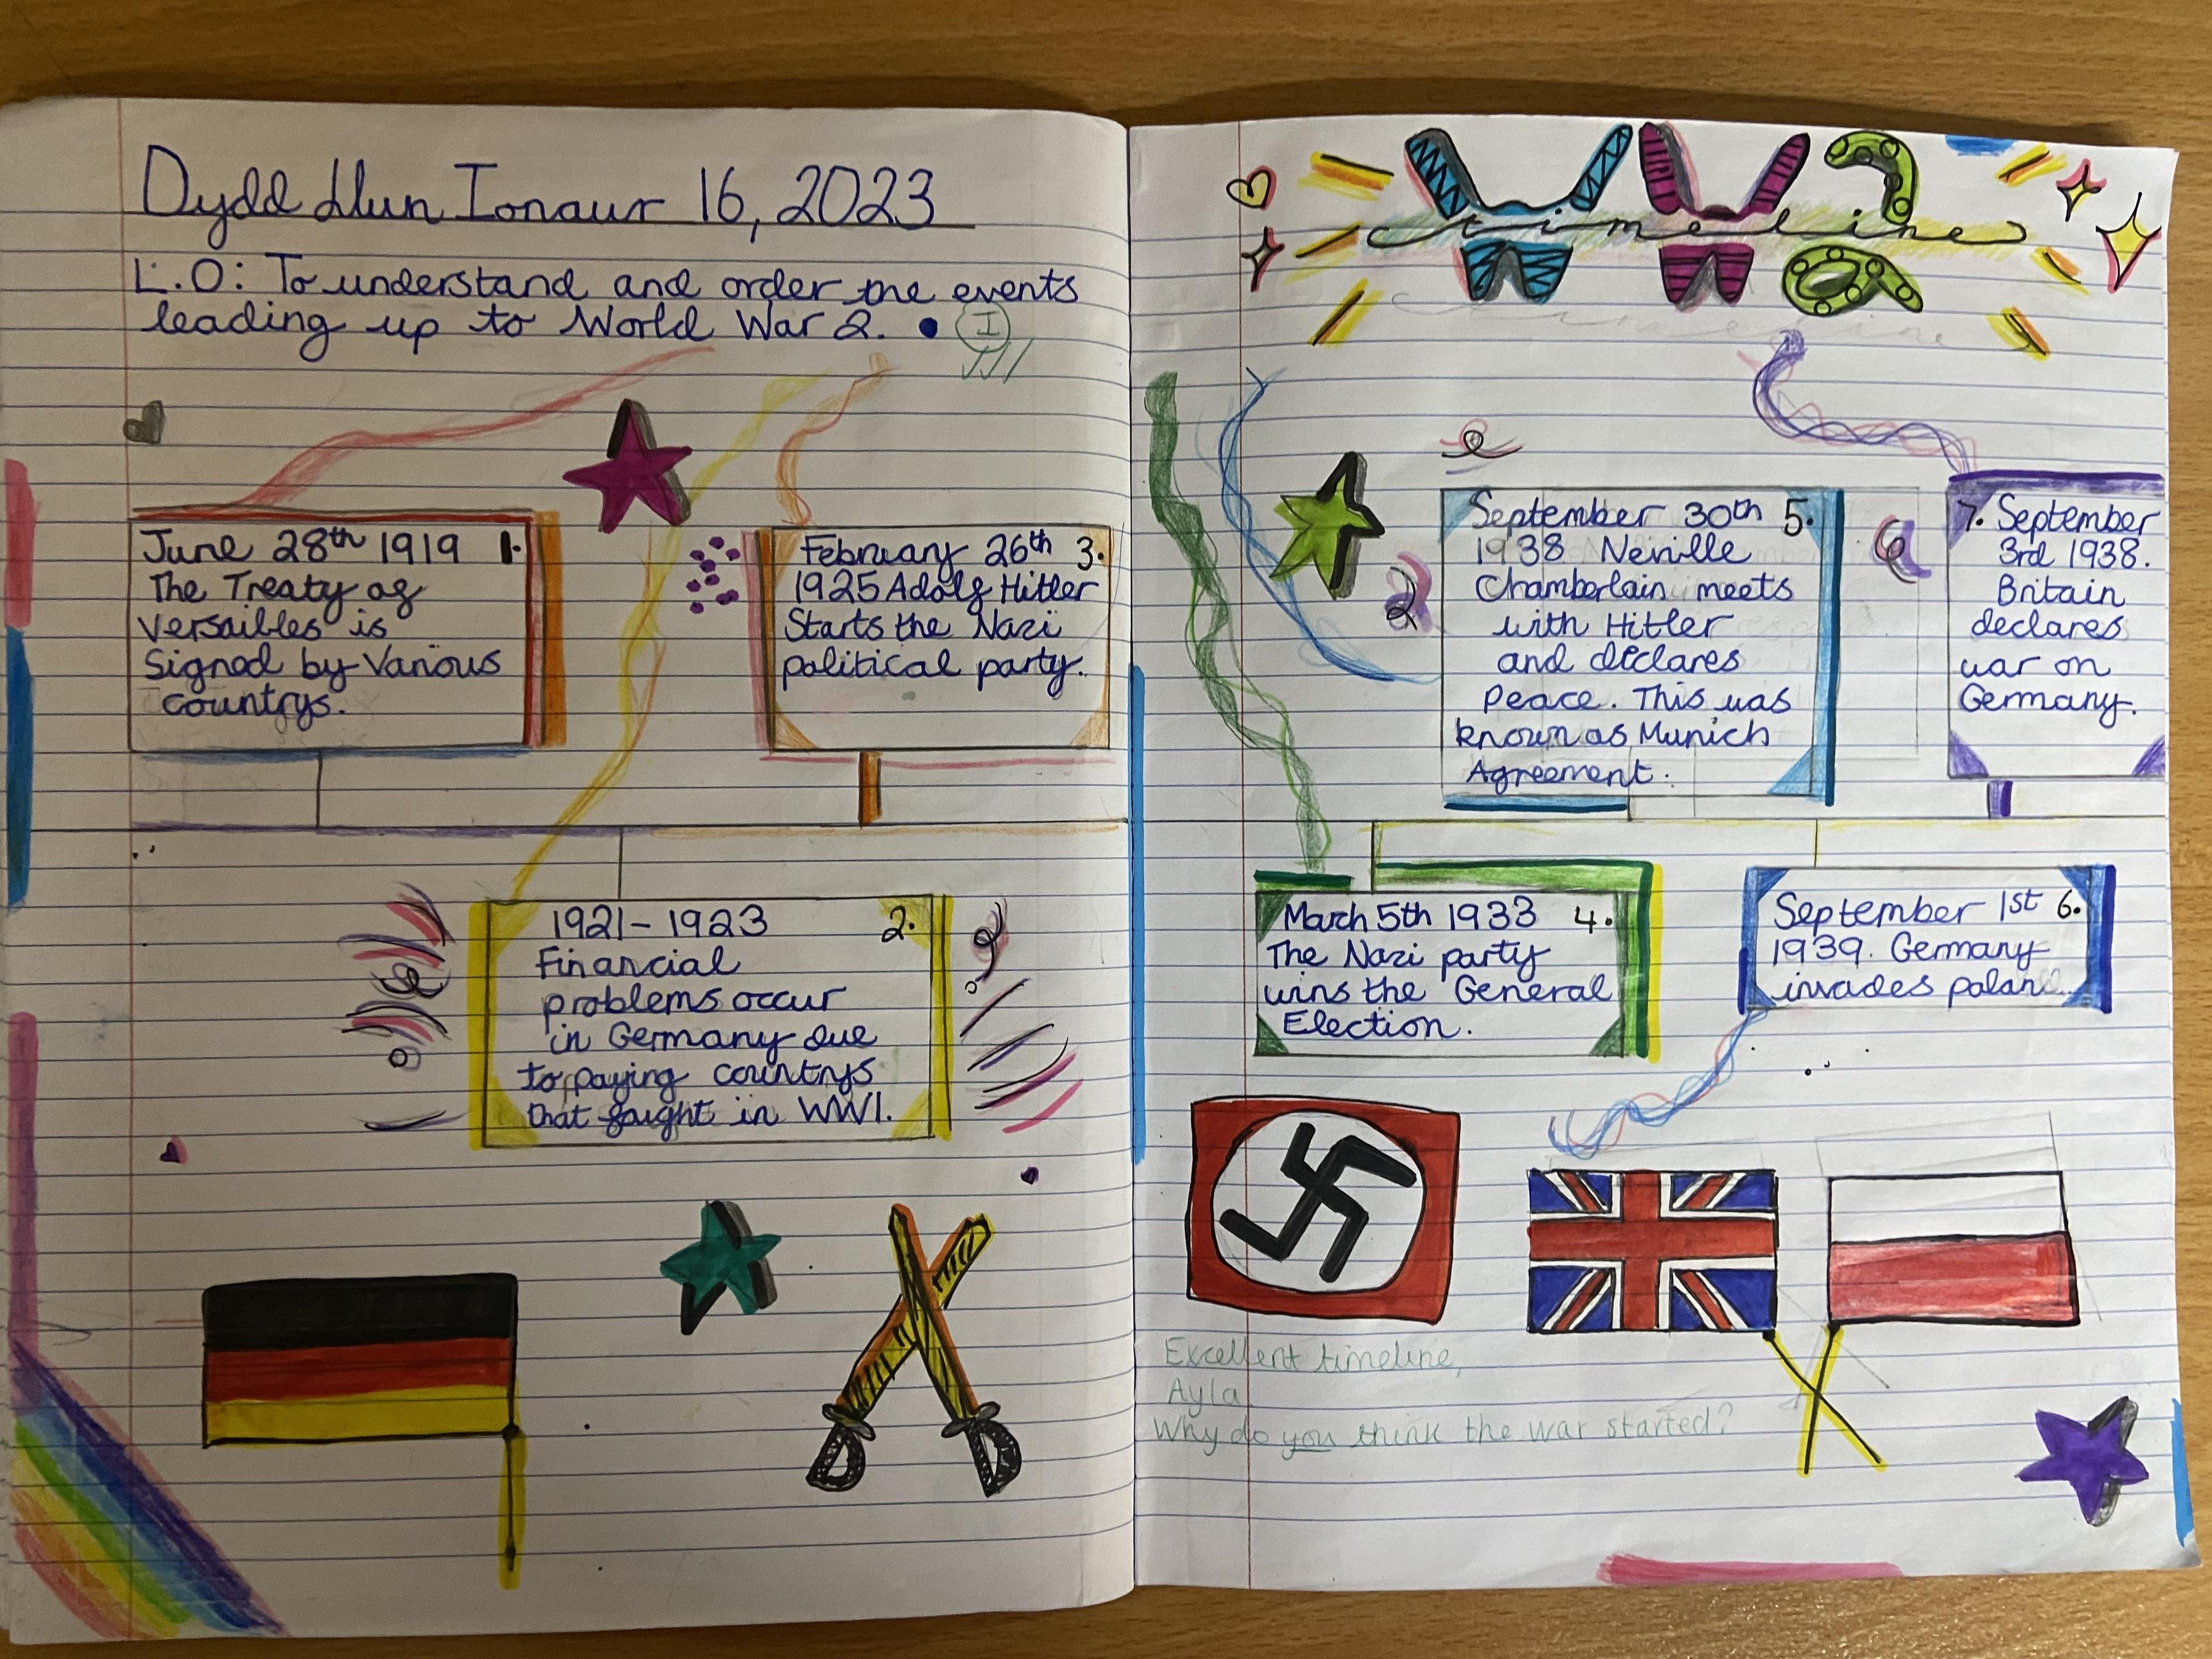 Dydd Llun Ionaur 16, 2023
L.O: To understand and order the events
leading up to World War 2. • I
June 28th 1919 1.
The Treaty of
Versailles is
Signed by Various
countrys.
1921-1923 2.
Financial
problems occur
in Germany due
to paying countrys
that faught in WW1.
February 26th 3.
1925 Adolf Hitler
Starts the Nazi
political party.
WW2
timeline
March 5th 1933 4.
The Nazi party
wins the General
Election.
September 30th 5.
1938 Neville
Chamberlain meets
with Hitler
and declares
Peace. This was
known as Munich
Agreement.
September 1st 6.
1939. Germany
invades polan
7. September
3rd 1938.
Britain
declares
war on
Germany.
Excellent timeline,
Ayla
Why do you think the war started?